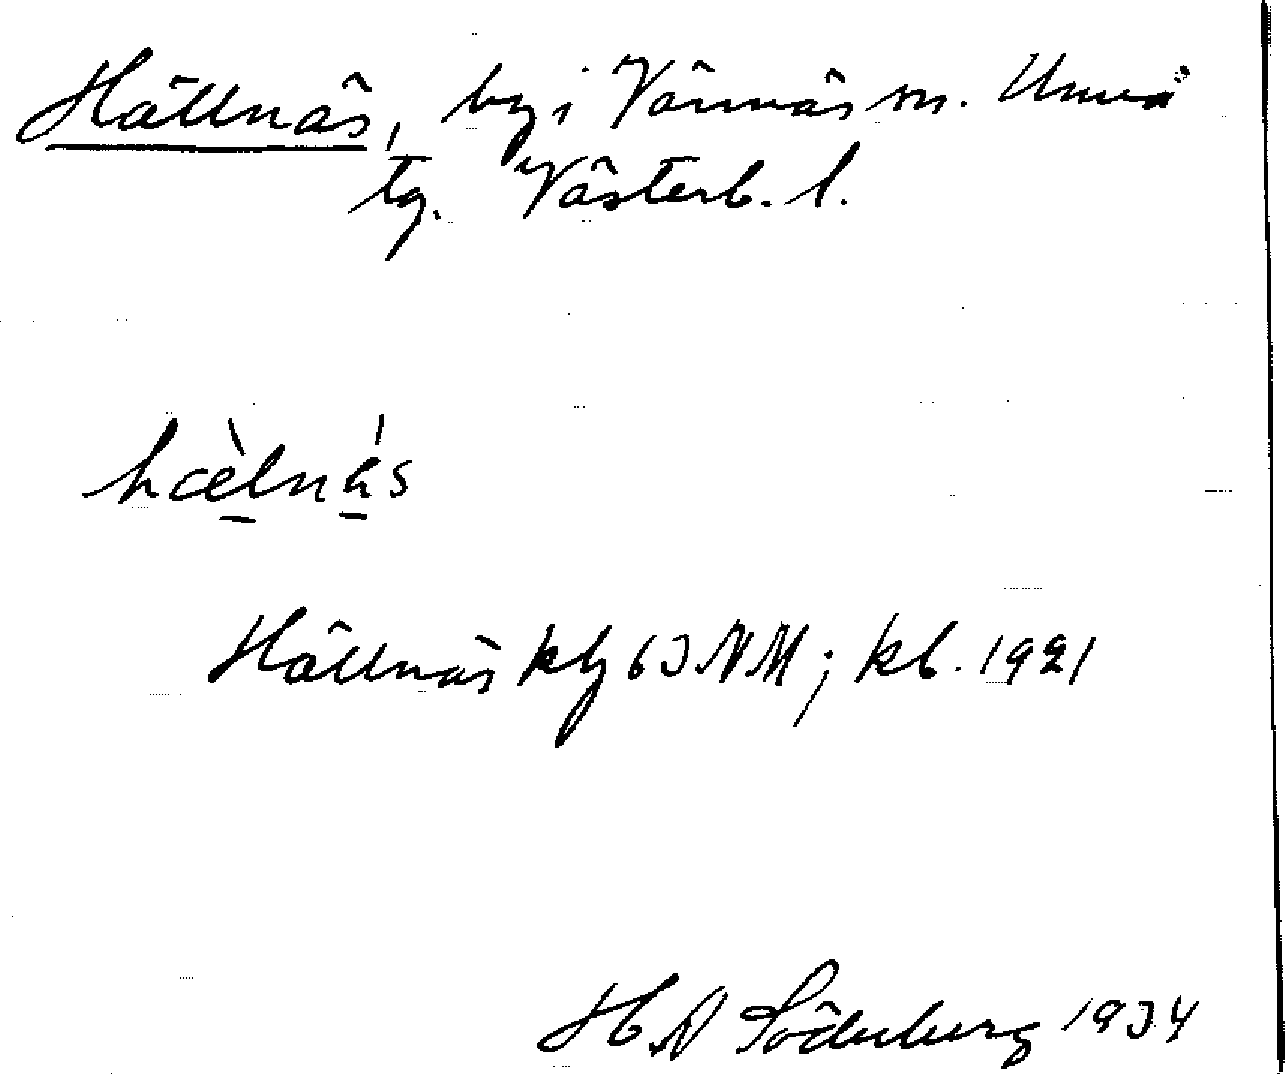 Hällnäs, by i Vännäs sn. Umeå
tg. Västerb. l.
hæ̀lnás
Hällnäs kbl 63 NM; kb. 1921
H. A Söderberg 1934